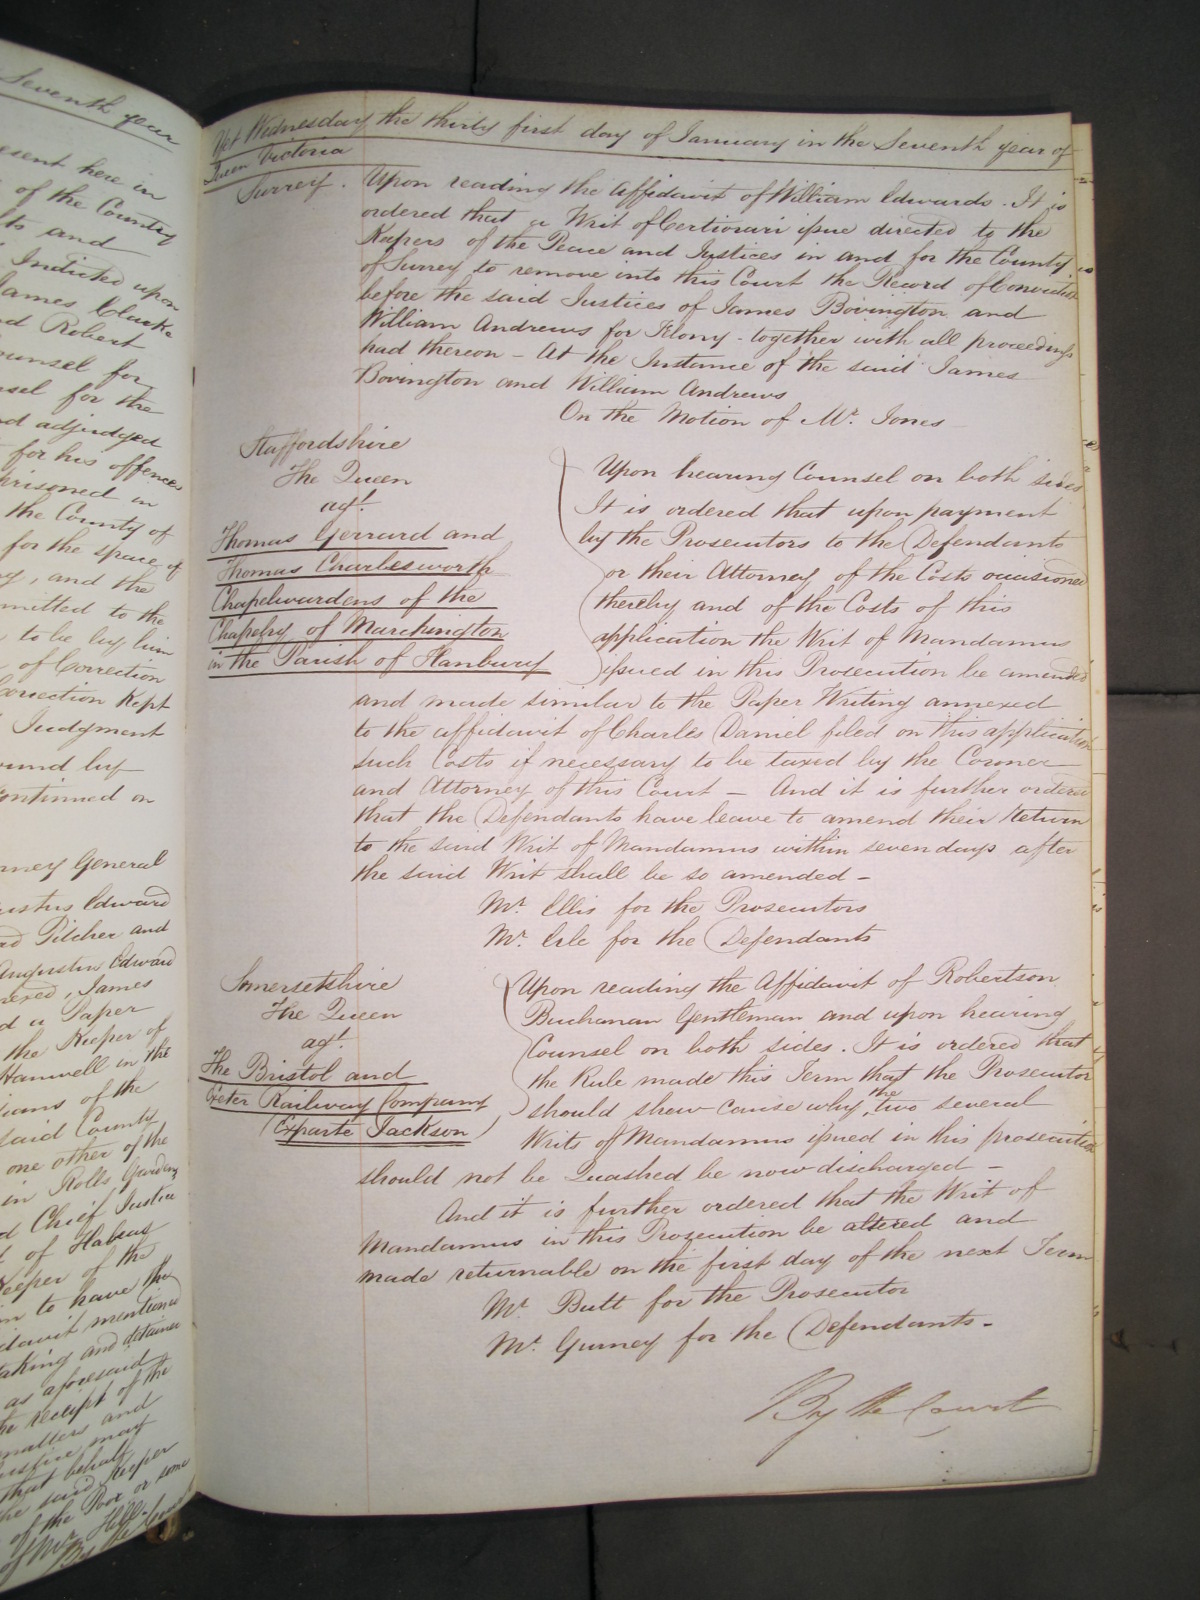 Seventh year
esent here in
of the County
ts and
Indicted upon
James Clarke
nd Robert
ounsel for
nsel for the
nd adjudged
for his offences
prisoned in
the County of
for the space of
and the
mmitted to the
to be by him
of Correction
Correction Kept
Judgment
ound by
continued on
rney General
ustus Edward
rd Pilcher and
Augustin Edward
nered, James
d a Paper
the Keeper of
Hanwell in the
ians of the
said County
one other of the
in Rolls Gardens
d Chief Justice
t of Habeas
Keeper of the
in to have the
davit mentioned
taking and detainer
as aforesaid
the receipt of the
matters and
ustice may
that behalf
he said Keeper
of the Poor or some
Mr. Hill
By the Court
Yet Wednesday the thirty first day of January in the Seventh year of
Queen Victoria
Surrey. Upon reading the Affidavit of William Edwards. It is
ordered that a Writ of Certiorari issue directed to the
Keepers of the Peace and Justices in and for the County
of Surrey to remove into this Court the Record of Conviction
before the said Justices of James Bovington and
William Andrews for Felony - together with all proceedings
had thereon - At the Instance of the said James
Bovington and William Andrews
On the Motion of Mr. Jones
Staffordshire
The Queen
agt.
Thomas Gerrard and
Thomas Charlesworth
Chapelwardens of the
Chapelry of Marchington
in the Parish of Hanbury
Upon hearing Counsel on both sides
It is ordered that upon payment
by the Prosecutors to the Defendants
or their Attorney of the Costs occasioned
thereby and of the Costs of this
application the Writ of Mandamus
issued in this Prosecution be amended
and made similar to the Paper Writing annexed
to the affidavit of Charles Daniel filed on this application
such Costs if necessary to be taxed by the Coroner
and Attorney of this Court - And it is further ordered
that the Defendants have leave to amend their Return
to the said Writ of Mandamus within seven days after
the said Writ shall be so amended -
Mr. Ellis for the Prosecutors
Mr. for the Defendants
Somersetshire
The Queen
agt.
The Bristol and
Exeter Railway Company
(Exparte Jackson)
Upon reading the Affidavit of Robertson
Buchanan Gentleman and upon hearing
Counsel on both sides. It is ordered that
the Rule made this Term that the Prosecutor
should shew cause why the two several
Writs of Mandamus issued in this prosecution
should not be Quashed be now discharged -
And it is further ordered that the Writ of
Mandamus in this Prosecution be altered and
made returnable on the first day of the next Term
Mr. Butt for the Prosecutor
Mr. Gurney for the Defendants -
By the Court